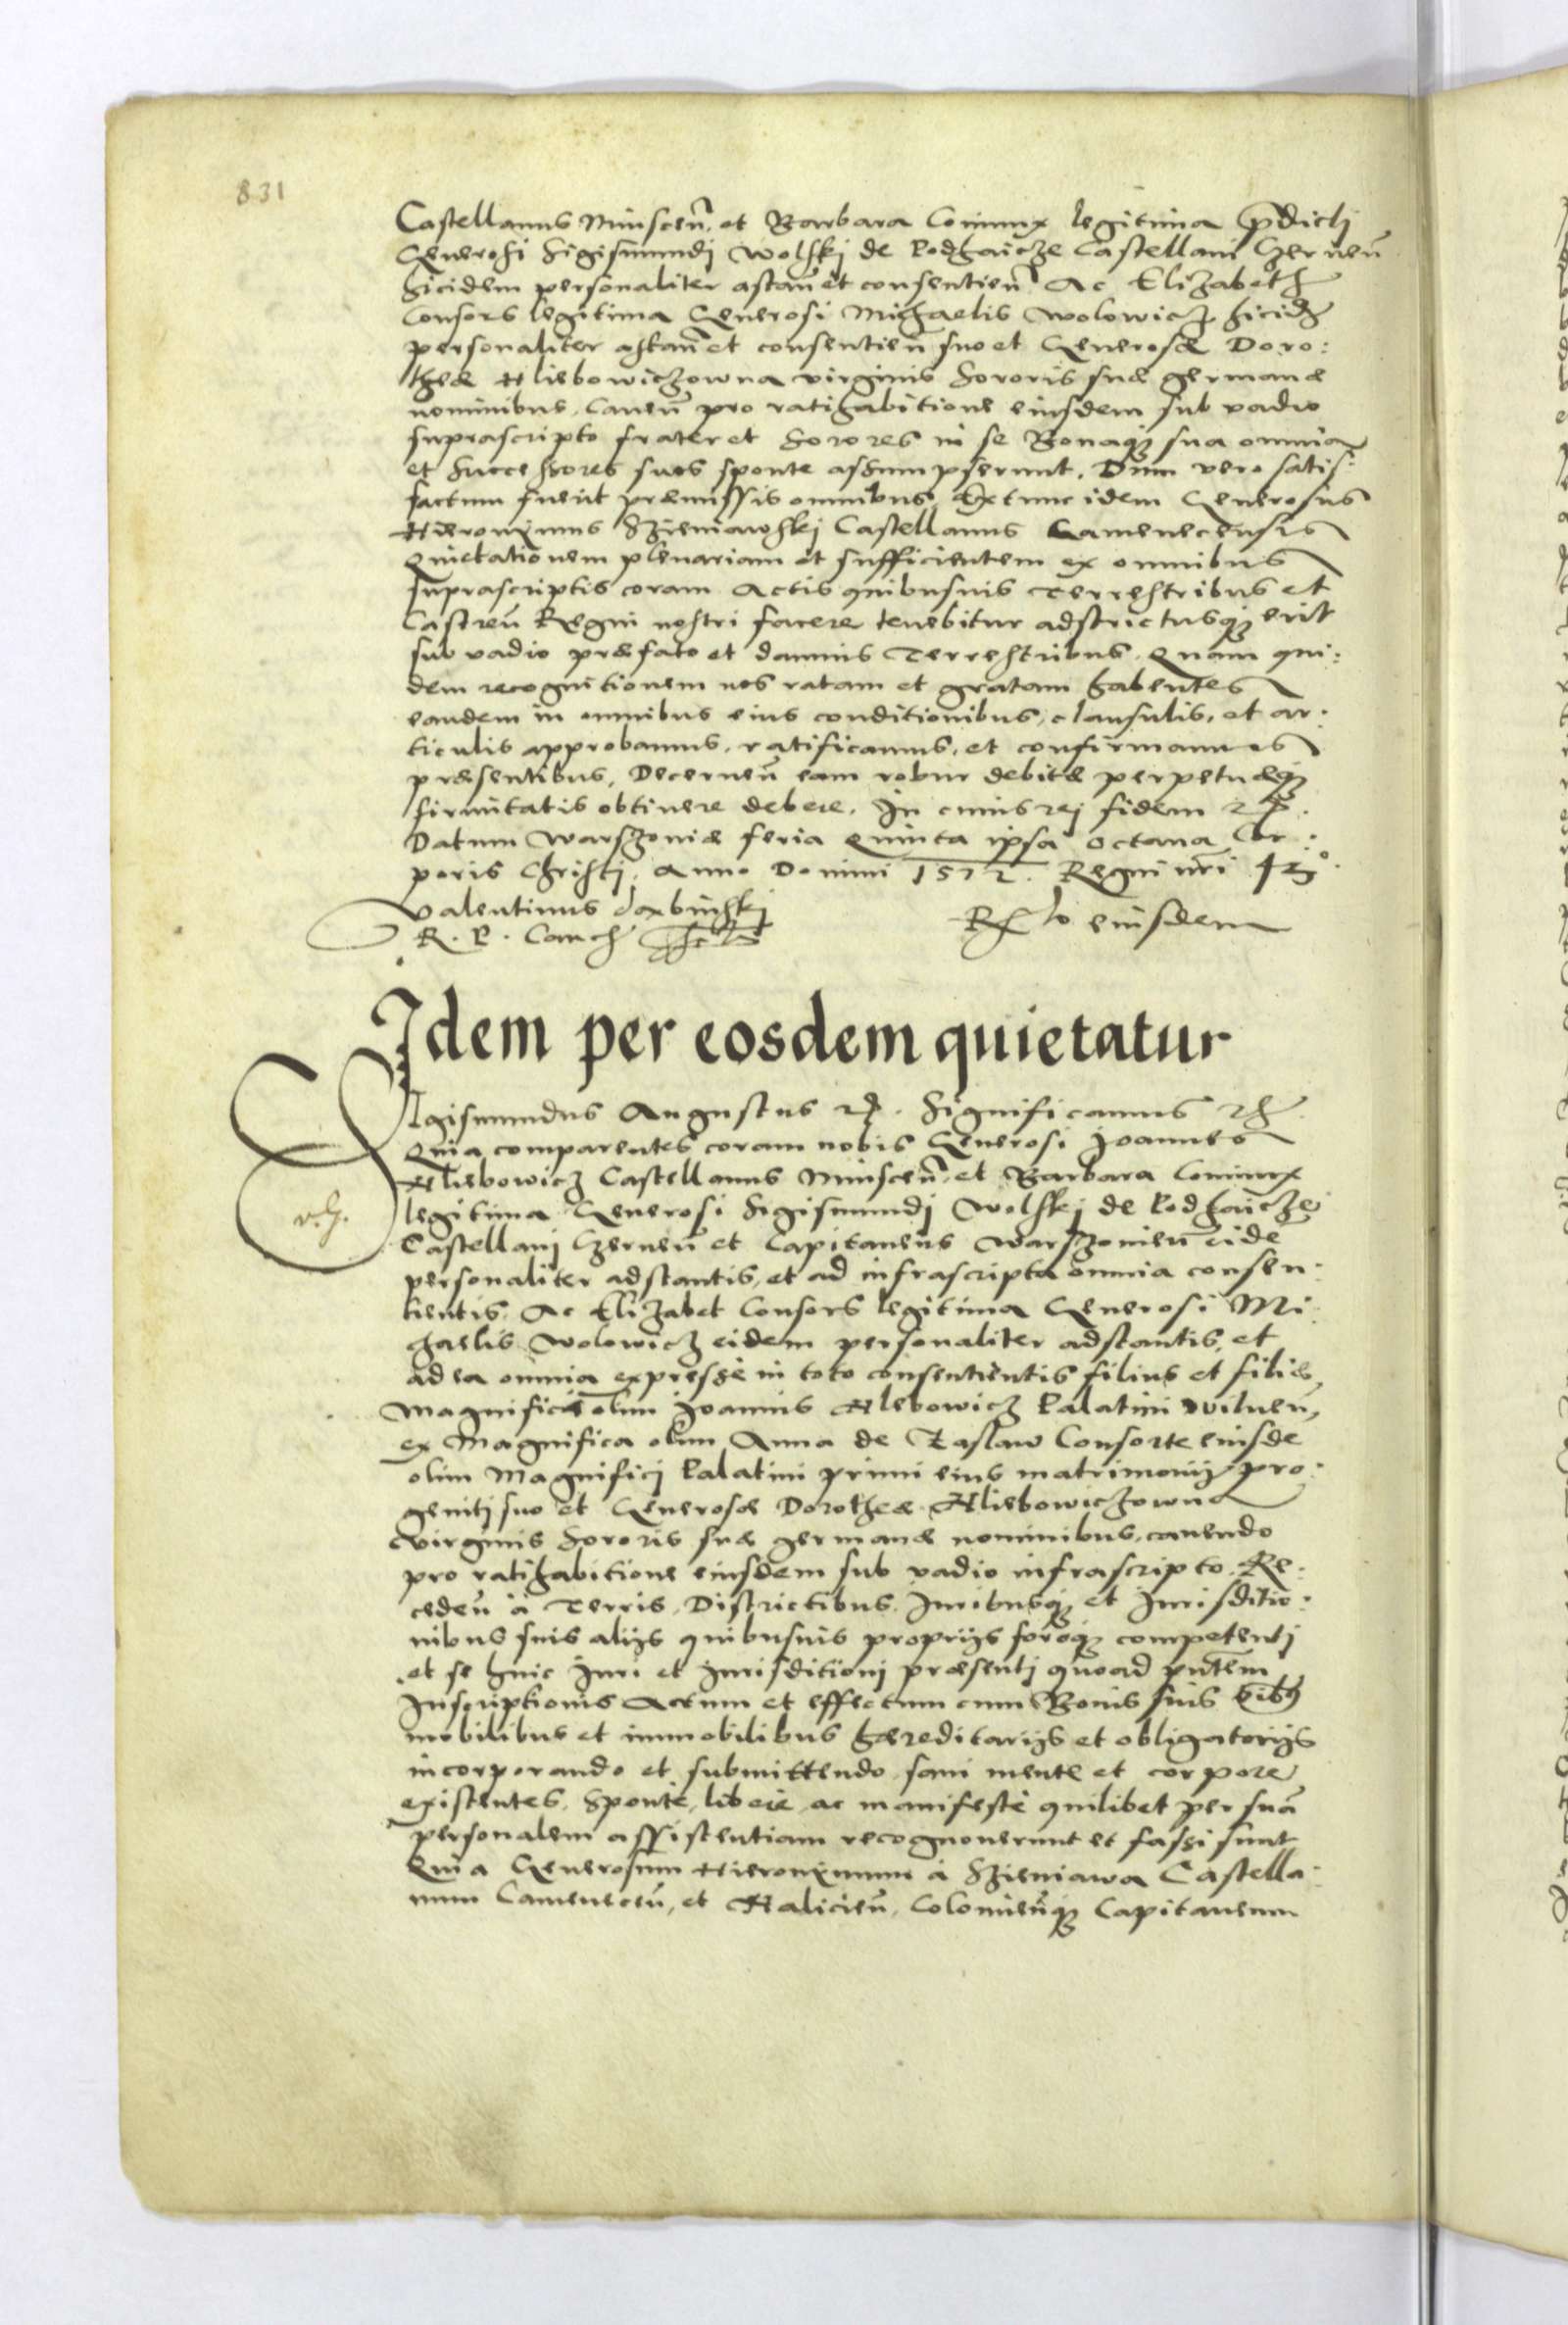 831
Castellanus Minsceñ. et Barbara Coniunx legitima p̃dictj
Generosi Sigismundj Wolskj de Podhaicze Castellani Czerneñ
hicidem personaliter astañ et consentieñ Ac Elizabeth
Consors legitima Generosi Michaelis Wolowicz hicidē
personaliter astañ et consentieñ suo et Generosæ Doro:
theæ Hliebowiczowna virginis Sororis suæ germanæ
nominibus, Caueñ pro ratihabitione eiusdem sub vadio
suprascripto frater et Sorores in se Bonaq3 sua omnia
et Successores suos sponte assumpserunt. Dum vero satis:
factum fuerit præmissis omnibus, Extunc idem Generosus
Hieronymus Szieniawskj Castellanus Camenecensis
Quietationem plenariam et sufficientem ex omnibus
suprascriptis coram Actis quibusuis Terrestribus et
Castreñ Regni nostri facere tenebitur adstrictusq3 erit
sub vadio præfato et damnis Terrestribus. Quam qui:
dem recognitionem nos ratam et gratam habentes
eandem in omnibus eius conditionibus, clausulis, et ar:
ticulis approbamus, ratificamus, et confirmamus
præsentibus, Decerneñ eam robur debitæ perpetuæq3
firmitatis obtinere debere. In cuius rej fidem &c.
Datum Warszouiæ feria Quinta ipsa octaua Cor:
poris Christi, Anno Domini 1572. Regni nr̃i 43°.
Valentinus Dembinskj
R. P. Canc
Rlo eiusdem
Idem per eosdem quietatur
Sigismundus Augustus &c. Significamus &c.
Quia comparentes coram nobis Generosi Joannes
Hliebowicz Castellanus Minsceñ. et Barbara Coniunx
legitima Generosi Sigismundj Wolskj de Podhaicze
Castellanj Czerneñ et Capitaneus Warszouieñ eide
personaliter adstantis, et ad infrascripta omnia consen:
tientis. Ac Elizabet Consors legitima Generosi Mi:
chaelis Wolowicz eidem personaliter adstantis, et
ad ea omnia expresse in toto consentientis filius et filiæ,
Magnifici olim Joannis Hlebowicz Palatini Vilneñ,
ex Magnifica olim Anna de Zaslaw Consorte eiusde
olim Magnificj Palatini primi eius matrimonij pro:
genitj suo et Generosæ Dorotheæ Hliebowiczowna
Virginis Sororis suæ germanæ nominibus, cauendo
pro ratihabitione eiusdem sub vadio infrascripto. Re:
cedeñ à Terris, Districtibus, Juribusq3 et Jurisditio:
nibus suis alijs quibusuis proprijs foroq3 competentj
et se huic Juri et Jurisditionj præsentj quoad pñtem
Inscriptionis Actum et effectum cum Bonis suis oĩbus
mobilibus et immobilibus hæreditarijs et obligatorijs
incorporando et submittendo sani mente et corpore
existentes. Sponte, libere, ac manifestè quilibet per suã
personalem assistentiam recognouerunt et fassi sunt
Quia Generosum Hieronymum à Szieniawa Castella:
num Cameneceñ, et Halicieñ, Colomieñq3 Capitaneum